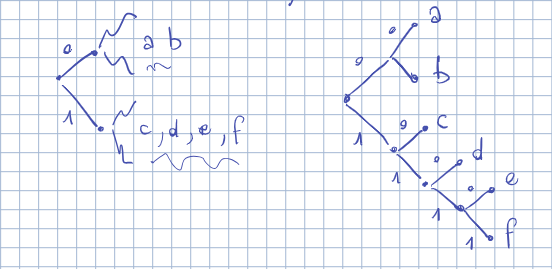 0
a b
1
c, d, e, f
0
a
0
b
1
0
c
1
0
d
1
0
e
1
f